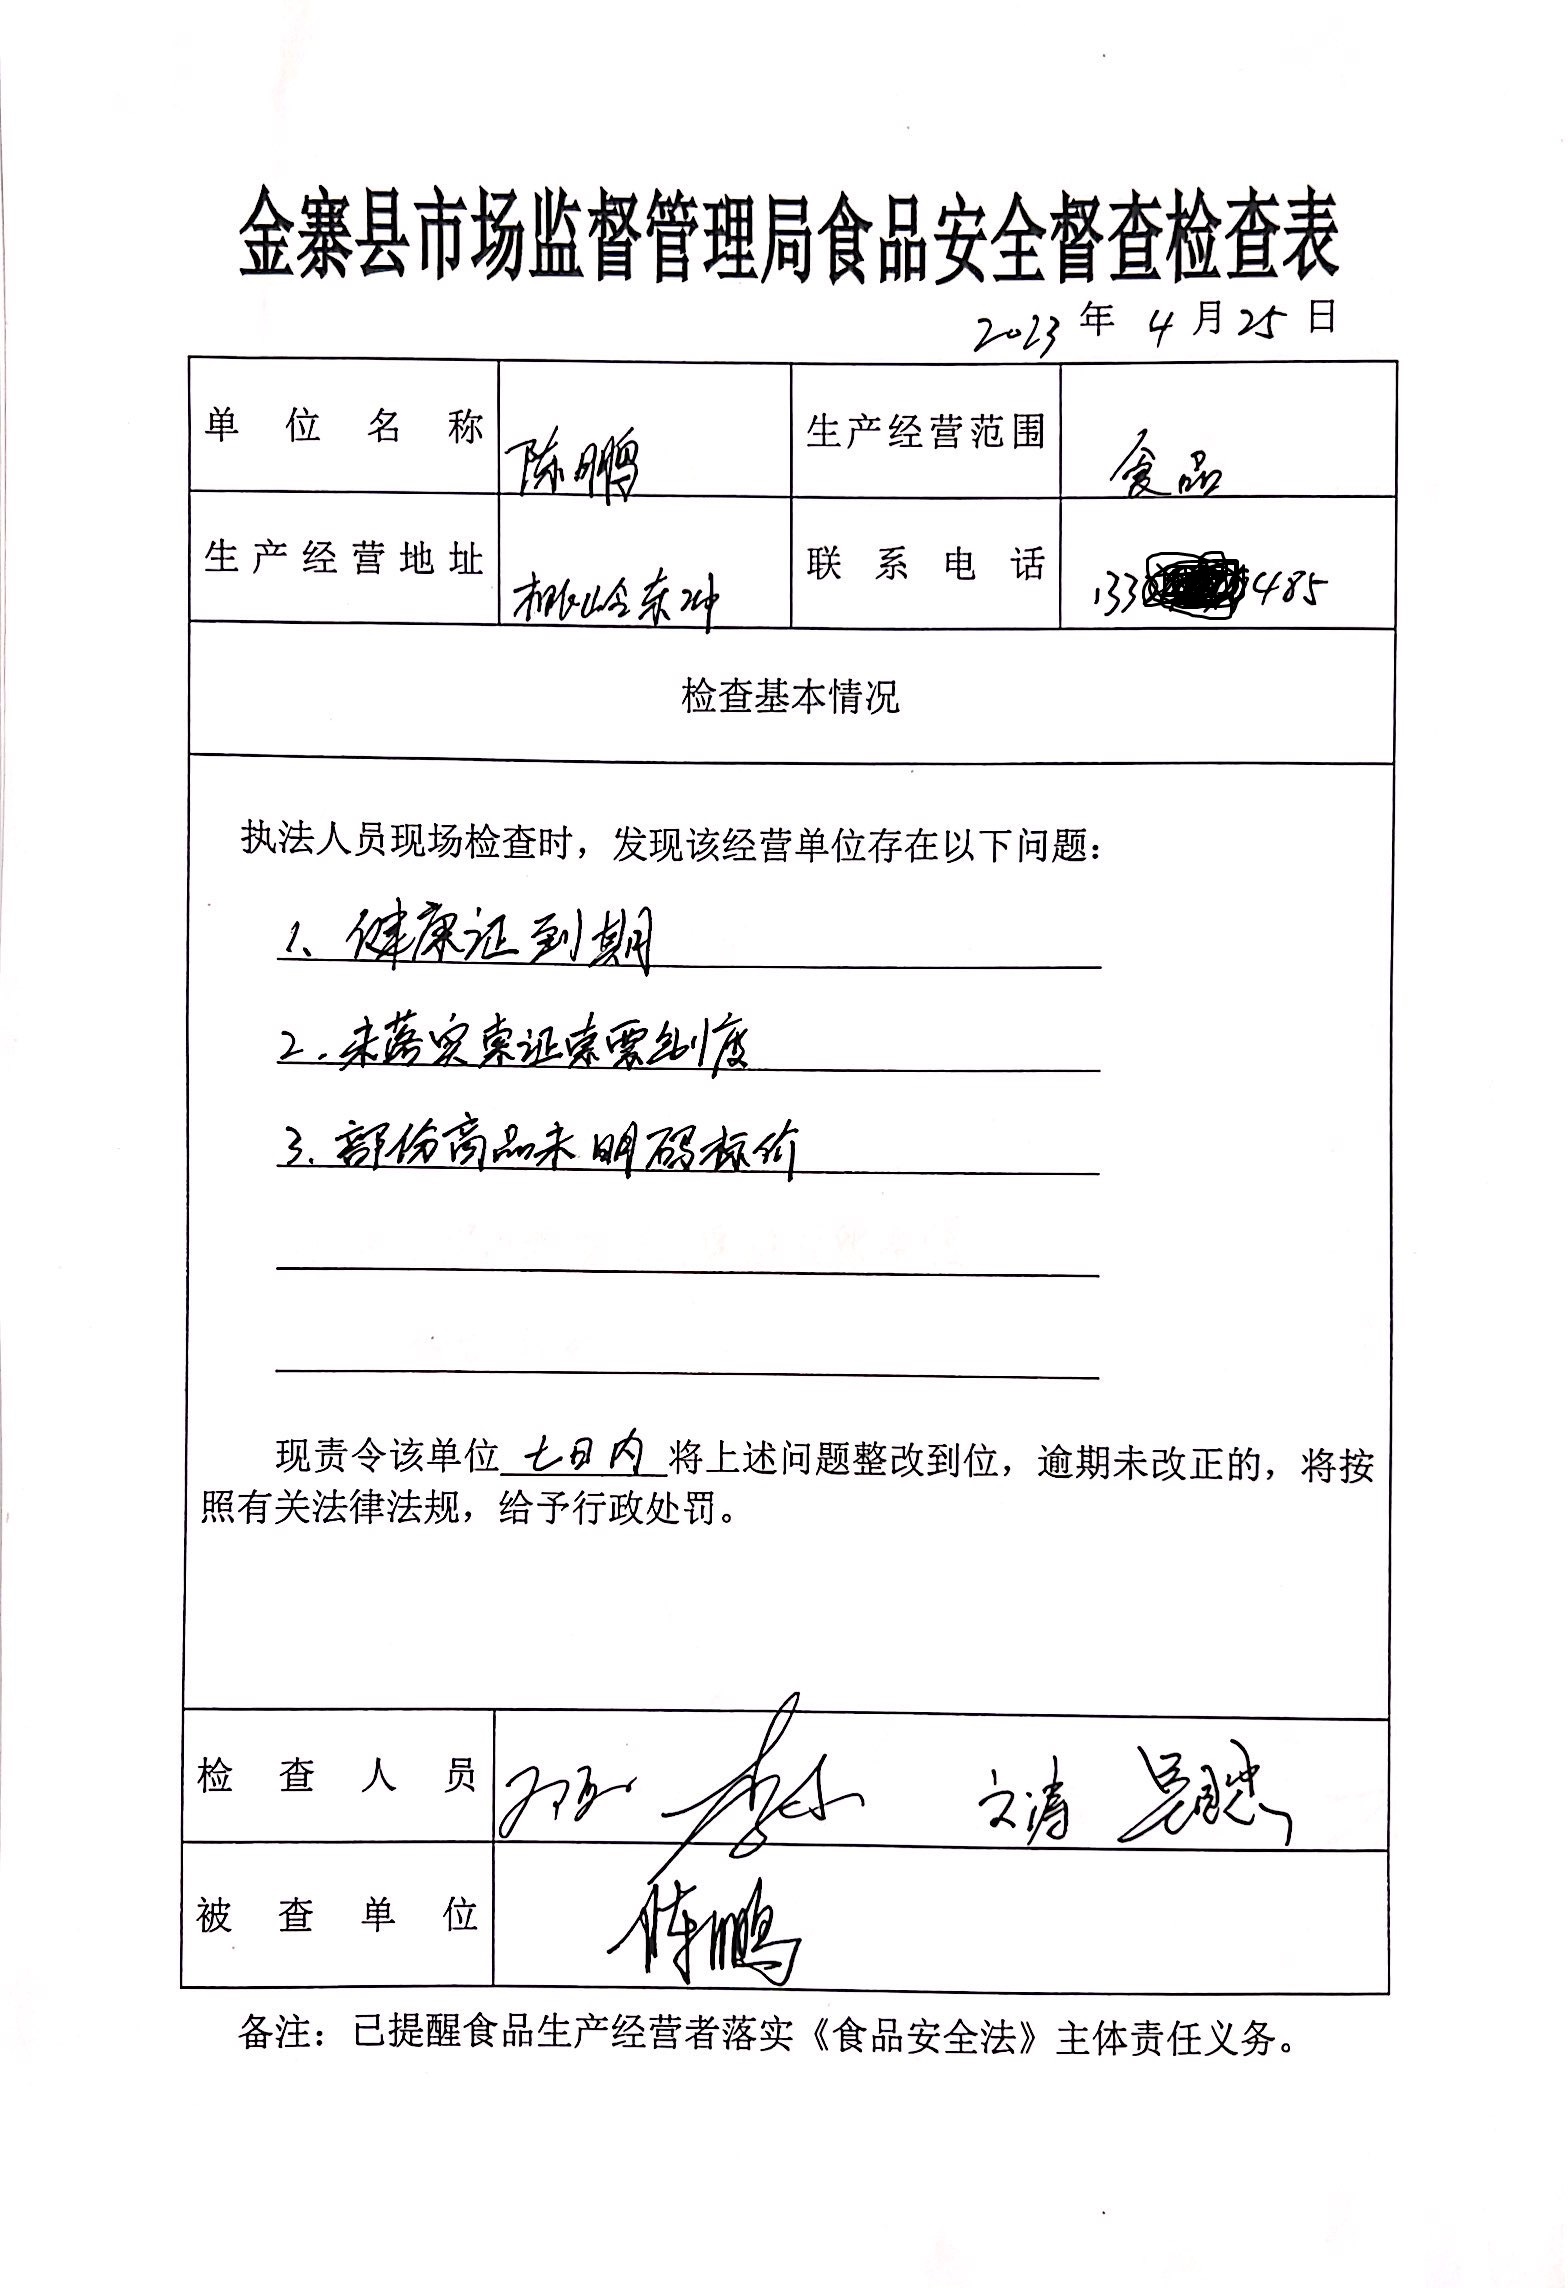 金寨县市场监督管理局食品安全督查检查表
2023 年 4 月 25 日
单位名称 陈鹏 生产经营范围 食品
生产经营地址 桃岭东冲 联系电话 133 485
检查基本情况
执法人员现场检查时，发现该经营单位存在以下问题：
1、健康证到期
2.未落实索证索票制度
3.部份商品未明码标价
现责令该单位七日内将上述问题整改到位，逾期未改正的，将按
照有关法律法规，给予行政处罚。
检查人员 文涛
被查单位 陈鹏
备注：已提醒食品生产经营者落实《食品安全法》主体责任义务。